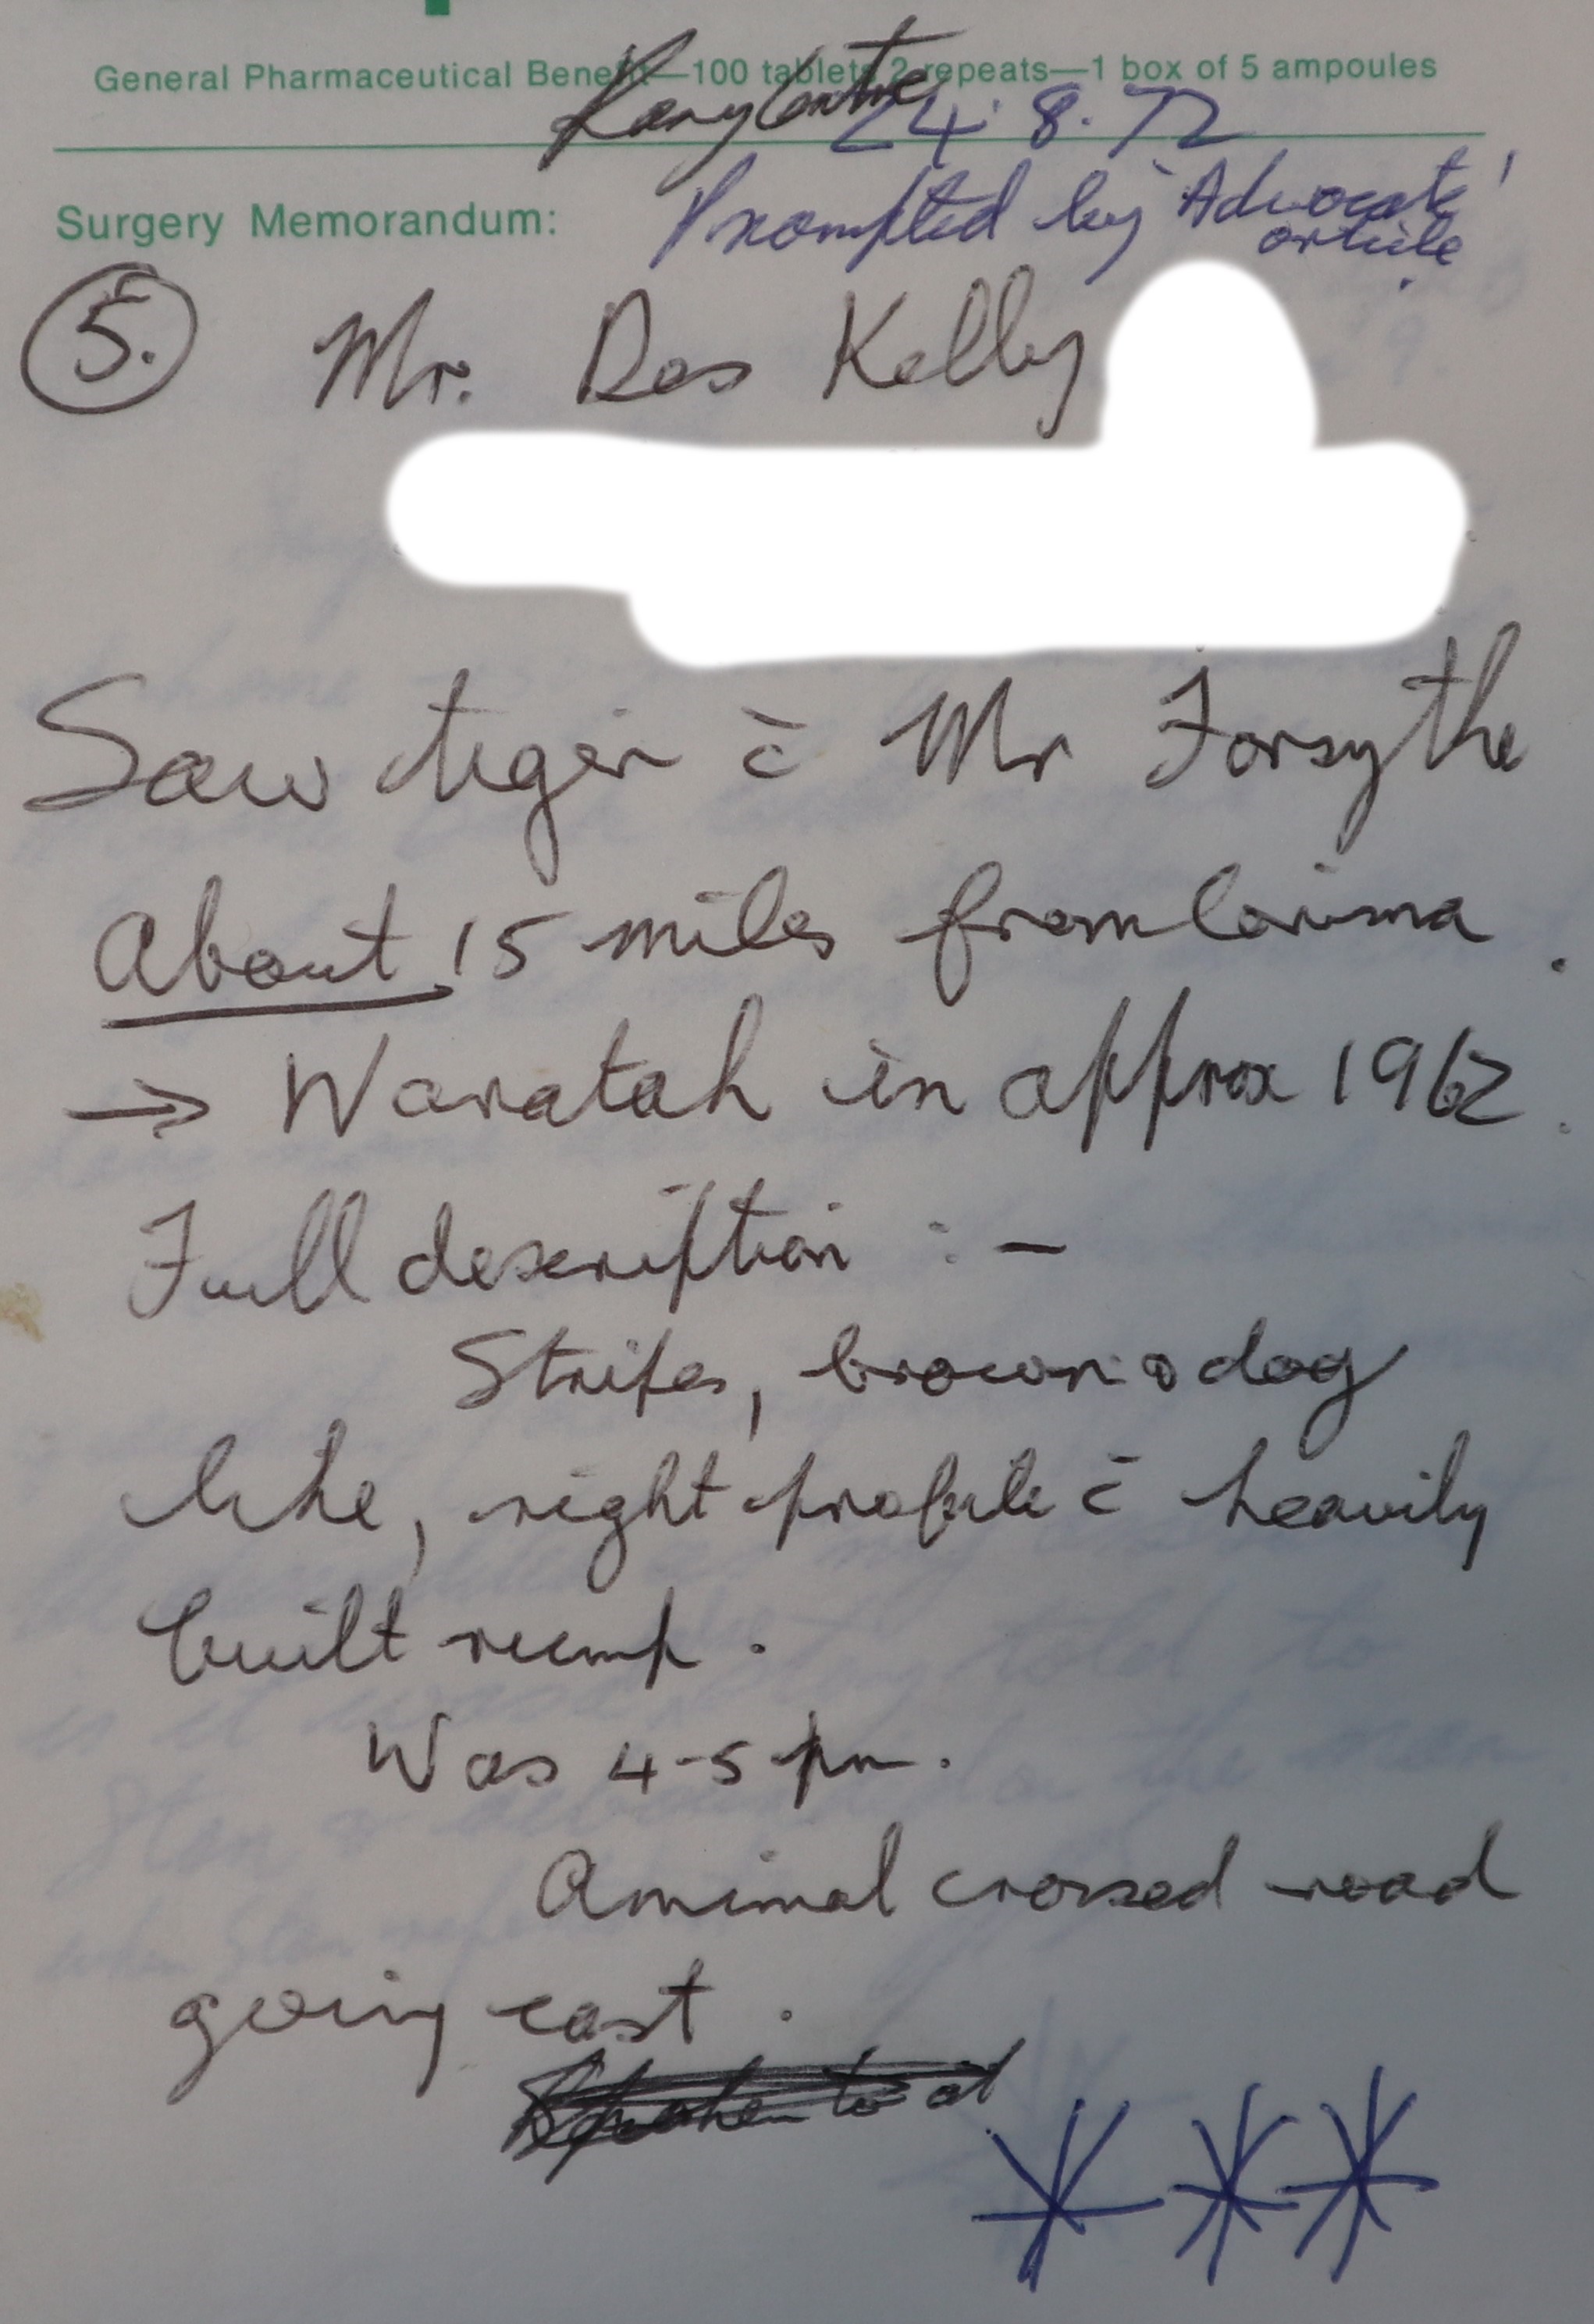 General Pharmaceutical Benefit—100 tablets 2 repeats—1 box of 5 ampoules
24.8.72
Surgery Memorandum:
Prompted by 'Advocate'
article.
5. Mr. Des Kelly
Saw tiger c̄ Mr Forsythe
About 15 miles from Corinna.
→ Waratah in approx 1962.
Full description :-
Stripes, brown & dog
like, right profile c̄ heavily
built rump.
Was 4-5 pm.
Animal crossed road
going east.